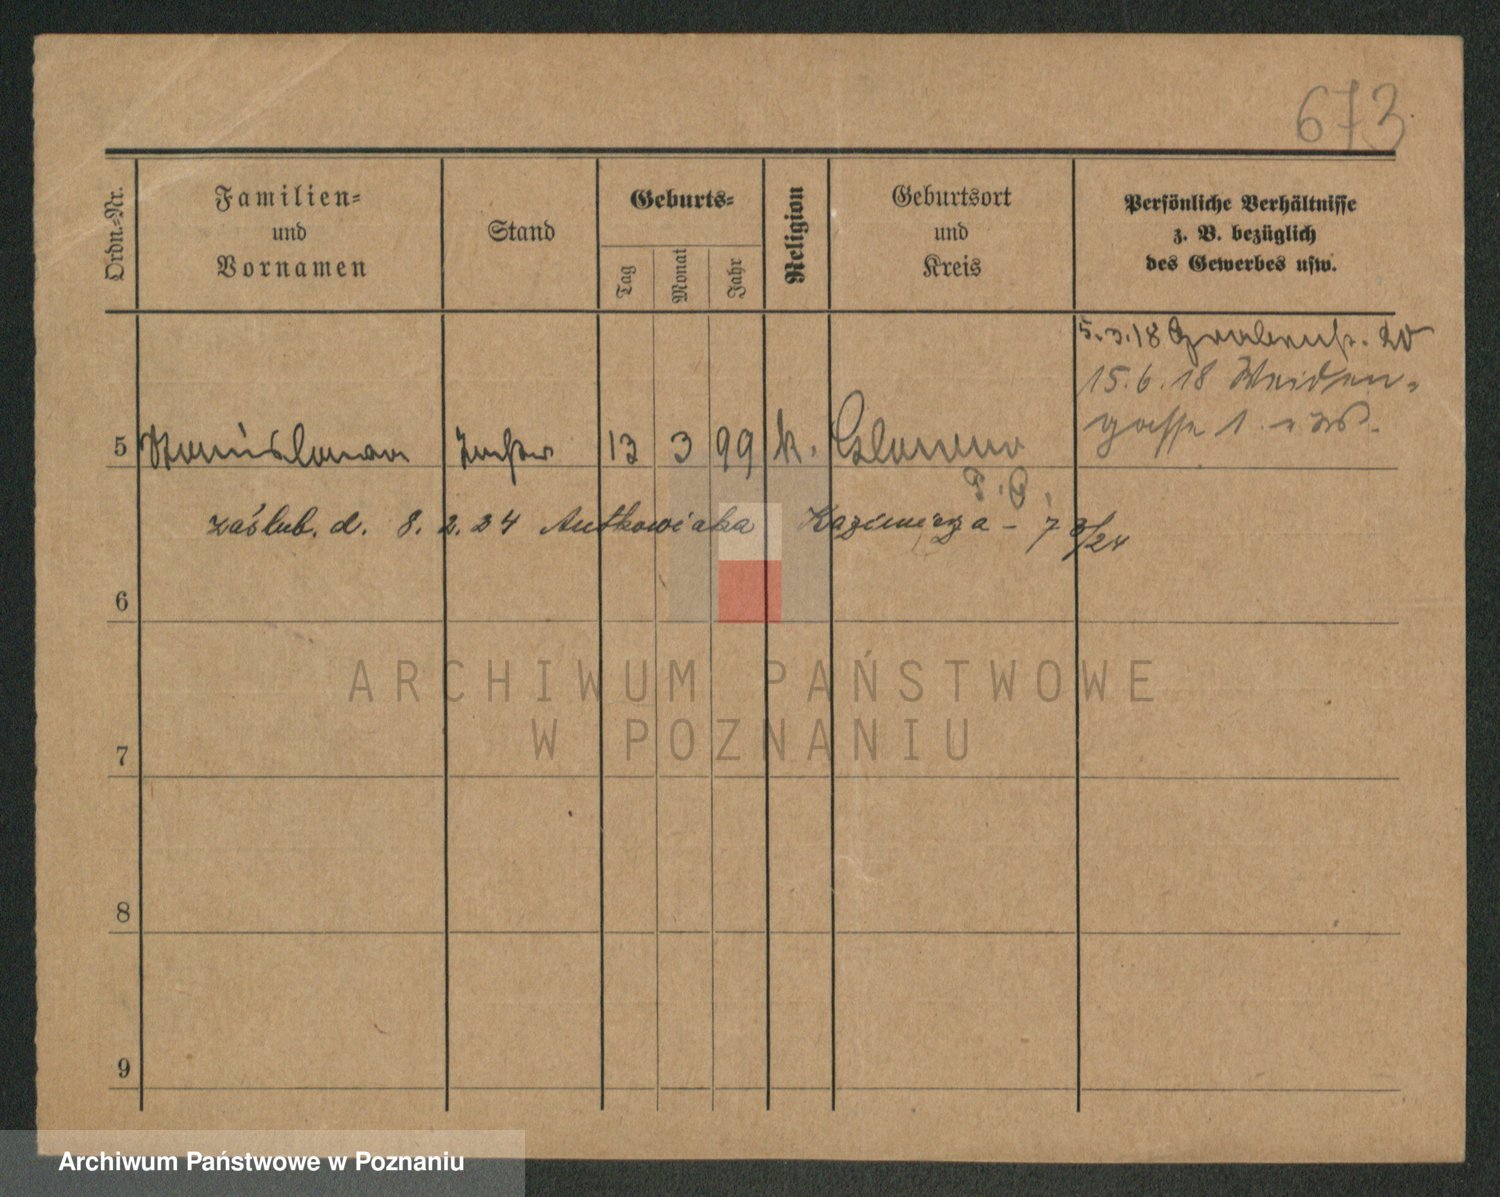 673
Ordn.-Nr.
Familien-
und
Vornamen
Stand
Geburts-
Tag
Monat
Jahr
Religion
Geburtsort
und
Kreis
Persönliche Verhältnisse
z. B. bezüglich
des Gewerbes usw.
5.3.18 Grabenstr. 20
15.6.18 Weiden-
gasse 1.
5 Stanislawa Tochter 13 3 99 k. Glowno
zaślub. d. 8.2.24 Antkowiaka Kazimierza - 7 3/24
6
ARCHIWUM PAŃSTWOWE
W POZNANIU
7
8
9
Archiwum Państwowe w Poznaniu